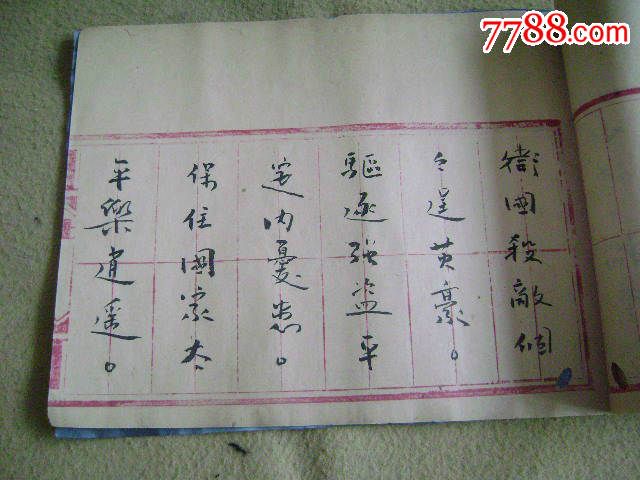 7788.com
衛國殺敵個
々逞英豪。
驅逐强盜平
定内憂患。
保住國家太
平樂逍遙。